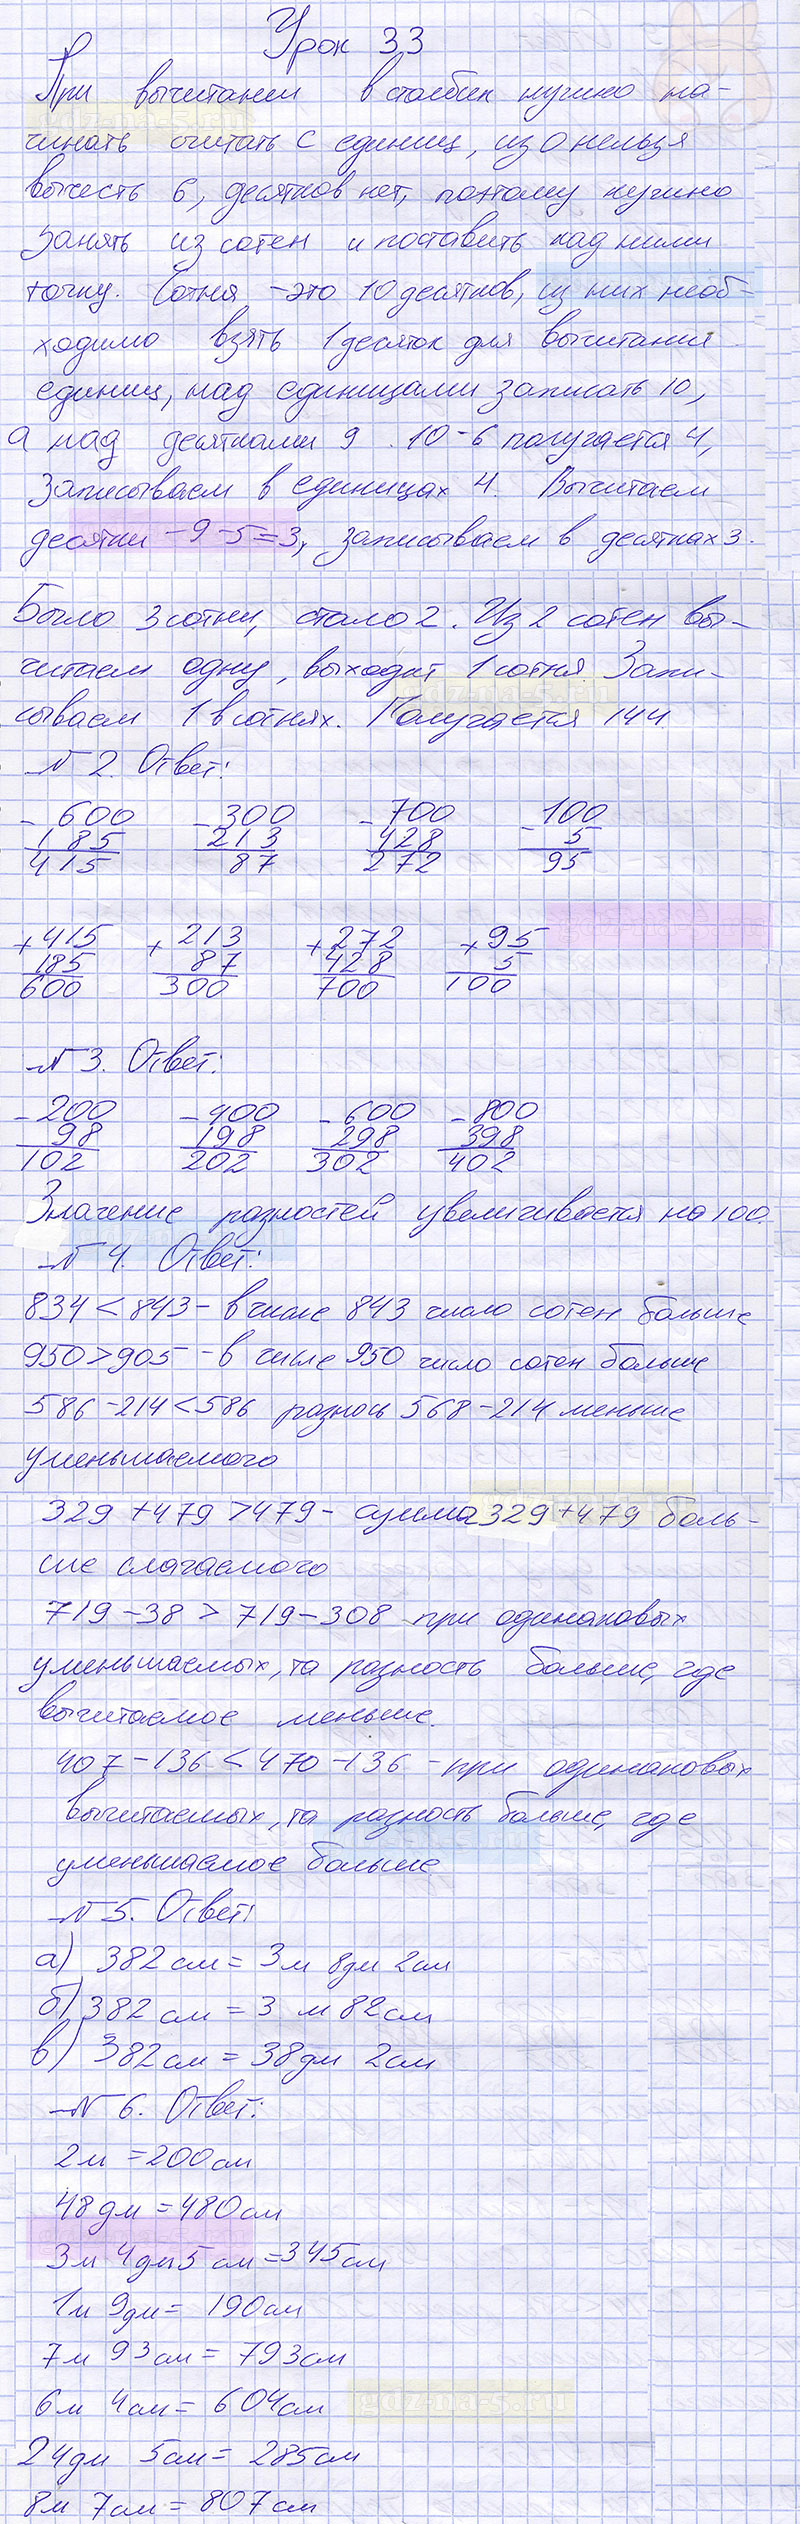 Урок 33
При вычитании в столбик нужно на-
чинать считать с единиц, из 0 нельзя
вычесть 6, десятков нет, поэтому нужно
занять из сотен и поставить над ними
точку. Сотня - это 10 десятков, из них необ-
ходимо взять 1 десяток для вычитания
единиц, над единицами записать 10,
а над десятками 9. 10-6 получается 4,
Записываем в единицах 4. Вычитаем
десятки - 9-5=3, записываем в десятках 3.
Было 3 сотни, стало 2. Из 2 сотен вы-
читаем одну, выходит 1 сотня Запи-
сываем 1 в сотнях. Получается 144
№ 2. Ответ:
- 600 - 300 - 700 - 100
185 213 428 5
415 87 272 95
+ 415 + 213 + 272 + 95
185 87 428 5
600 300 700 100
№ 3. Ответ:
- 200 - 400 - 600 - 800
98 198 298 398
102 202 302 402
Значение разностей увеличивается на 100.
№ 4. Ответ:
834 < 843 - в числе 843 число сотен больше
950 > 905 - в числе 950 число сотен больше
586 - 214 < 586 разнось 568 - 214 меньше
уменьшаемого
329 + 479 > 479 - сумма 329 + 479 боль-
ше слагаемого
719 - 38 > 719 - 308 при одинаковых
уменьшаемых, та разность больше, где
вычитаемое меньше.
407 - 136 < 470 - 136 - при одинаковых
вычитаемых, та разность больше, где
уменьшаемое больше
№ 5. Ответ:
а) 382 см = 3 м 8 дм 2 см
б) 382 см = 3 м 82 см
в) 382 см = 38 дм 2 см
№ 6. Ответ:
2 м = 200 см
48 дм = 480 см
3 м 4 дм 5 см = 345 см
1 м 9 дм = 190 см
7 м 93 см = 793 см
6 м 4 см = 604 см
gdz-na-5.ru
24 дм 5 см = 285 см
8 м 7 см = 807 см